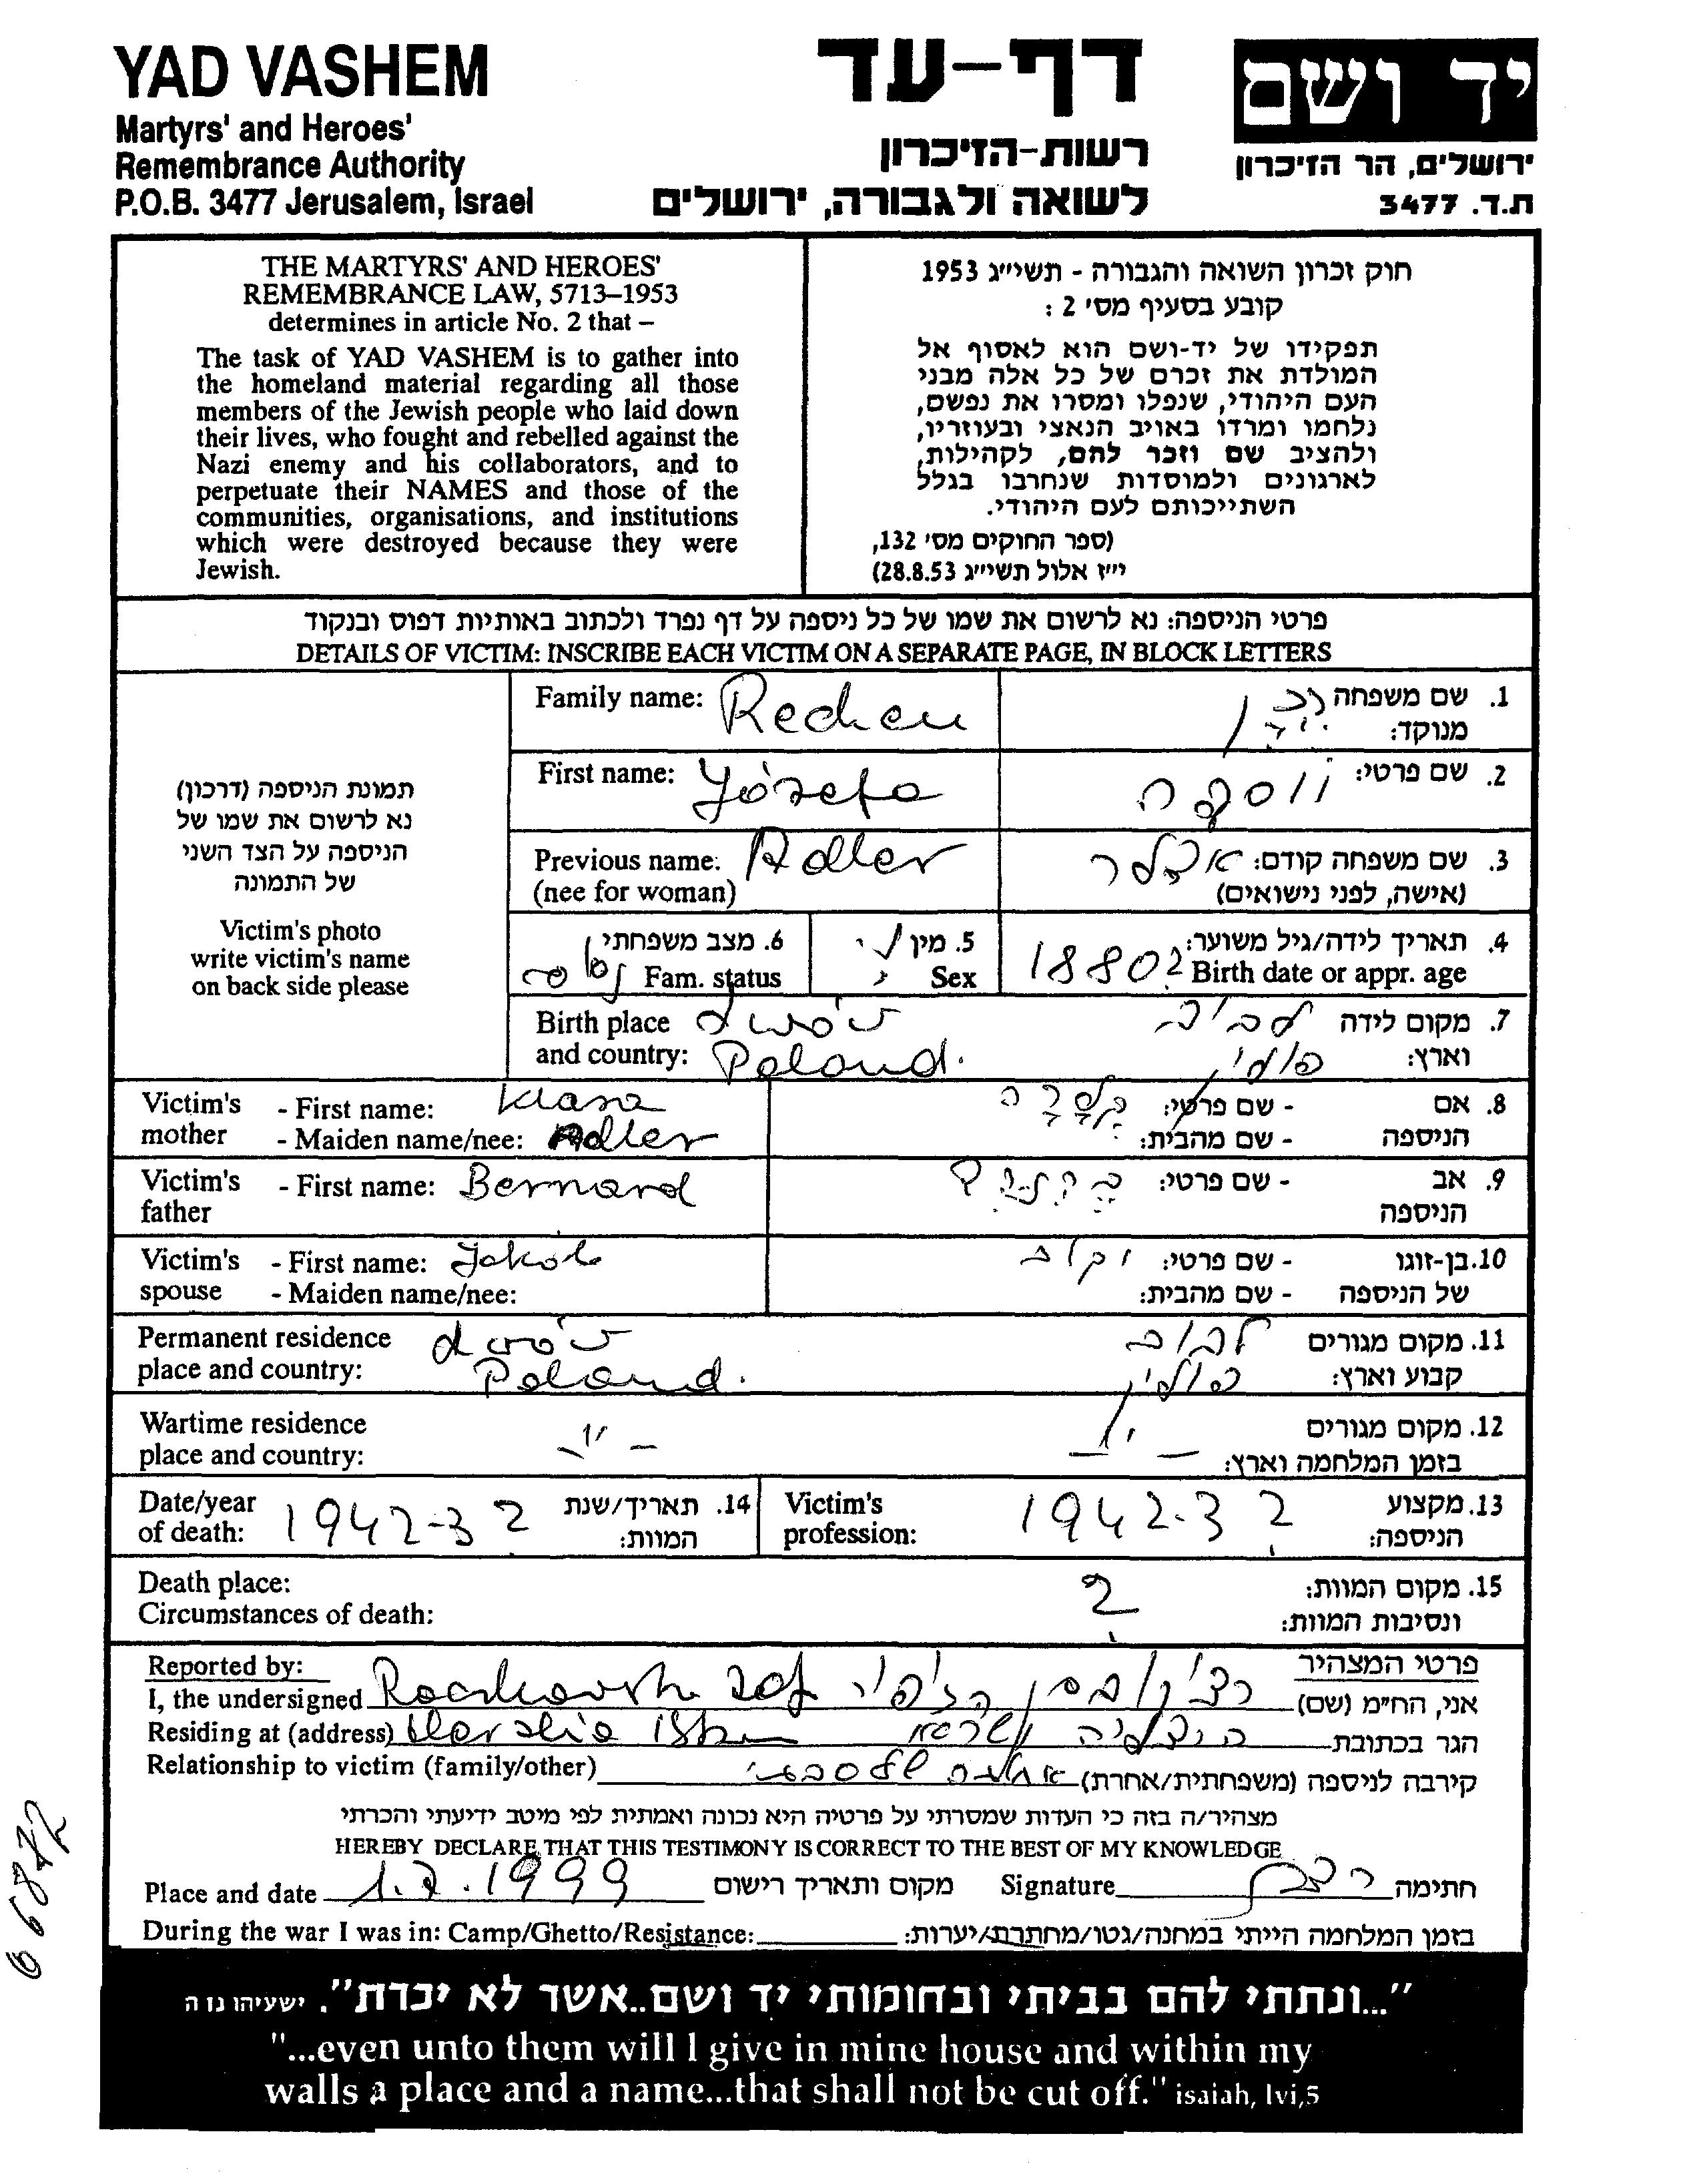 YAD VASHEM
Martyrs' and Heroes'
Remembrance Authority
P.O.B. 3477 Jerusalem, Israel
דף-עד
רשות-הזיכרון
לשואה ולגבורה, ירושלים
יד ושם
ירושלים, הר הזיכרון
ת.ד. 3477
THE MARTYRS' AND HEROES'
REMEMBRANCE LAW, 5713–1953
determines in article No. 2 that –
The task of YAD VASHEM is to gather into
the homeland material regarding all those
members of the Jewish people who laid down
their lives, who fought and rebelled against the
Nazi enemy and his collaborators, and to
perpetuate their NAMES and those of the
communities, organisations, and institutions
which were destroyed because they were
Jewish.
חוק זכרון השואה והגבורה - תשי״ג 1953
קובע בסעיף מס' 2 :
תפקידו של יד-ושם הוא לאסוף אל
המולדת את זכרם של כל אלה מבני
העם היהודי, שנפלו ומסרו את נפשם,
נלחמו ומרדו באויב הנאצי ובעוזריו,
ולהציב שם וזכר להם, לקהילות,
לארגונים ולמוסדות שנחרבו בגלל
השתייכותם לעם היהודי.
(ספר החוקים מס' 132,
י״ז אלול תשי״ג 28.8.53)
פרטי הניספה: נא לרשום את שמו של כל ניספה על דף נפרד ולכתוב באותיות דפוס ובנקוד
DETAILS OF VICTIM: INSCRIBE EACH VICTIM ON A SEPARATE PAGE, IN BLOCK LETTERS
תמונת הניספה (דרכון)
נא לרשום את שמו של
הניספה על הצד השני
של התמונה
Victim's photo
write victim's name
on back side please
Family name: Rechen
1. שם משפחה
מנוקד:
First name: Józefa
2. שם פרטי: יוספה
Previous name: Adler
(nee for woman)
3. שם משפחה קודם: אדלר
(אישה, לפני נישואים)
4. תאריך לידה/גיל משוער:
1880? Birth date or appr. age
5. מין
Sex
6. מצב משפחתי
Fam. status
Birth place Lwów
and country: Poland.
7. מקום לידה לבוב
וארץ: פולין
Victim's - First name: Klara
mother - Maiden name/nee: Adler
8. אם - שם פרטי: קלרה
הניספה - שם מהבית:
Victim's - First name: Bernard
father
9. אב - שם פרטי: ברנרד
הניספה
Victim's - First name: Jakób
spouse - Maiden name/nee:
10. בן-זוגו - שם פרטי: יקוב
של הניספה - שם מהבית:
Permanent residence Lwów
place and country: Poland.
11. מקום מגורים לבוב
קבוע וארץ: פולין
Wartime residence
place and country: – " –
12. מקום מגורים
בזמן המלחמה וארץ: – " –
Date/year
of death: 1942-3 ?
14. תאריך/שנת
המוות:
Victim's
profession: 1942-3 ?
13. מקצוע
הניספה:
Death place:
Circumstances of death:
?
15. מקום המוות:
ונסיבות המוות:
Reported by:
פרטי המצהיר
I, the undersigned
אני, הח״מ (שם)
Residing at (address) Herzlia
הגר בכתובת הרצליה ישראל
Relationship to victim (family/other)
קירבה לניספה (משפחתית/אחרת)
מצהיר/ה בזה כי העדות שמסרתי על פרטיה היא נכונה ואמתית לפי מיטב ידיעתי והכרתי
HEREBY DECLARE THAT THIS TESTIMONY IS CORRECT TO THE BEST OF MY KNOWLEDGE
Place and date 1.7.1999 מקום ותאריך רישום
Signature חתימה
During the war I was in: Camp/Ghetto/Resistance:
בזמן המלחמה הייתי במחנה/גטו/מחתרת/יערות:
"...ונתתי להם בביתי ובחומותי יד ושם..אשר לא יכרת". ישעיהו נו ה
"...even unto them will I give in mine house and within my
walls a place and a name...that shall not be cut off." isaiah, lvi,5